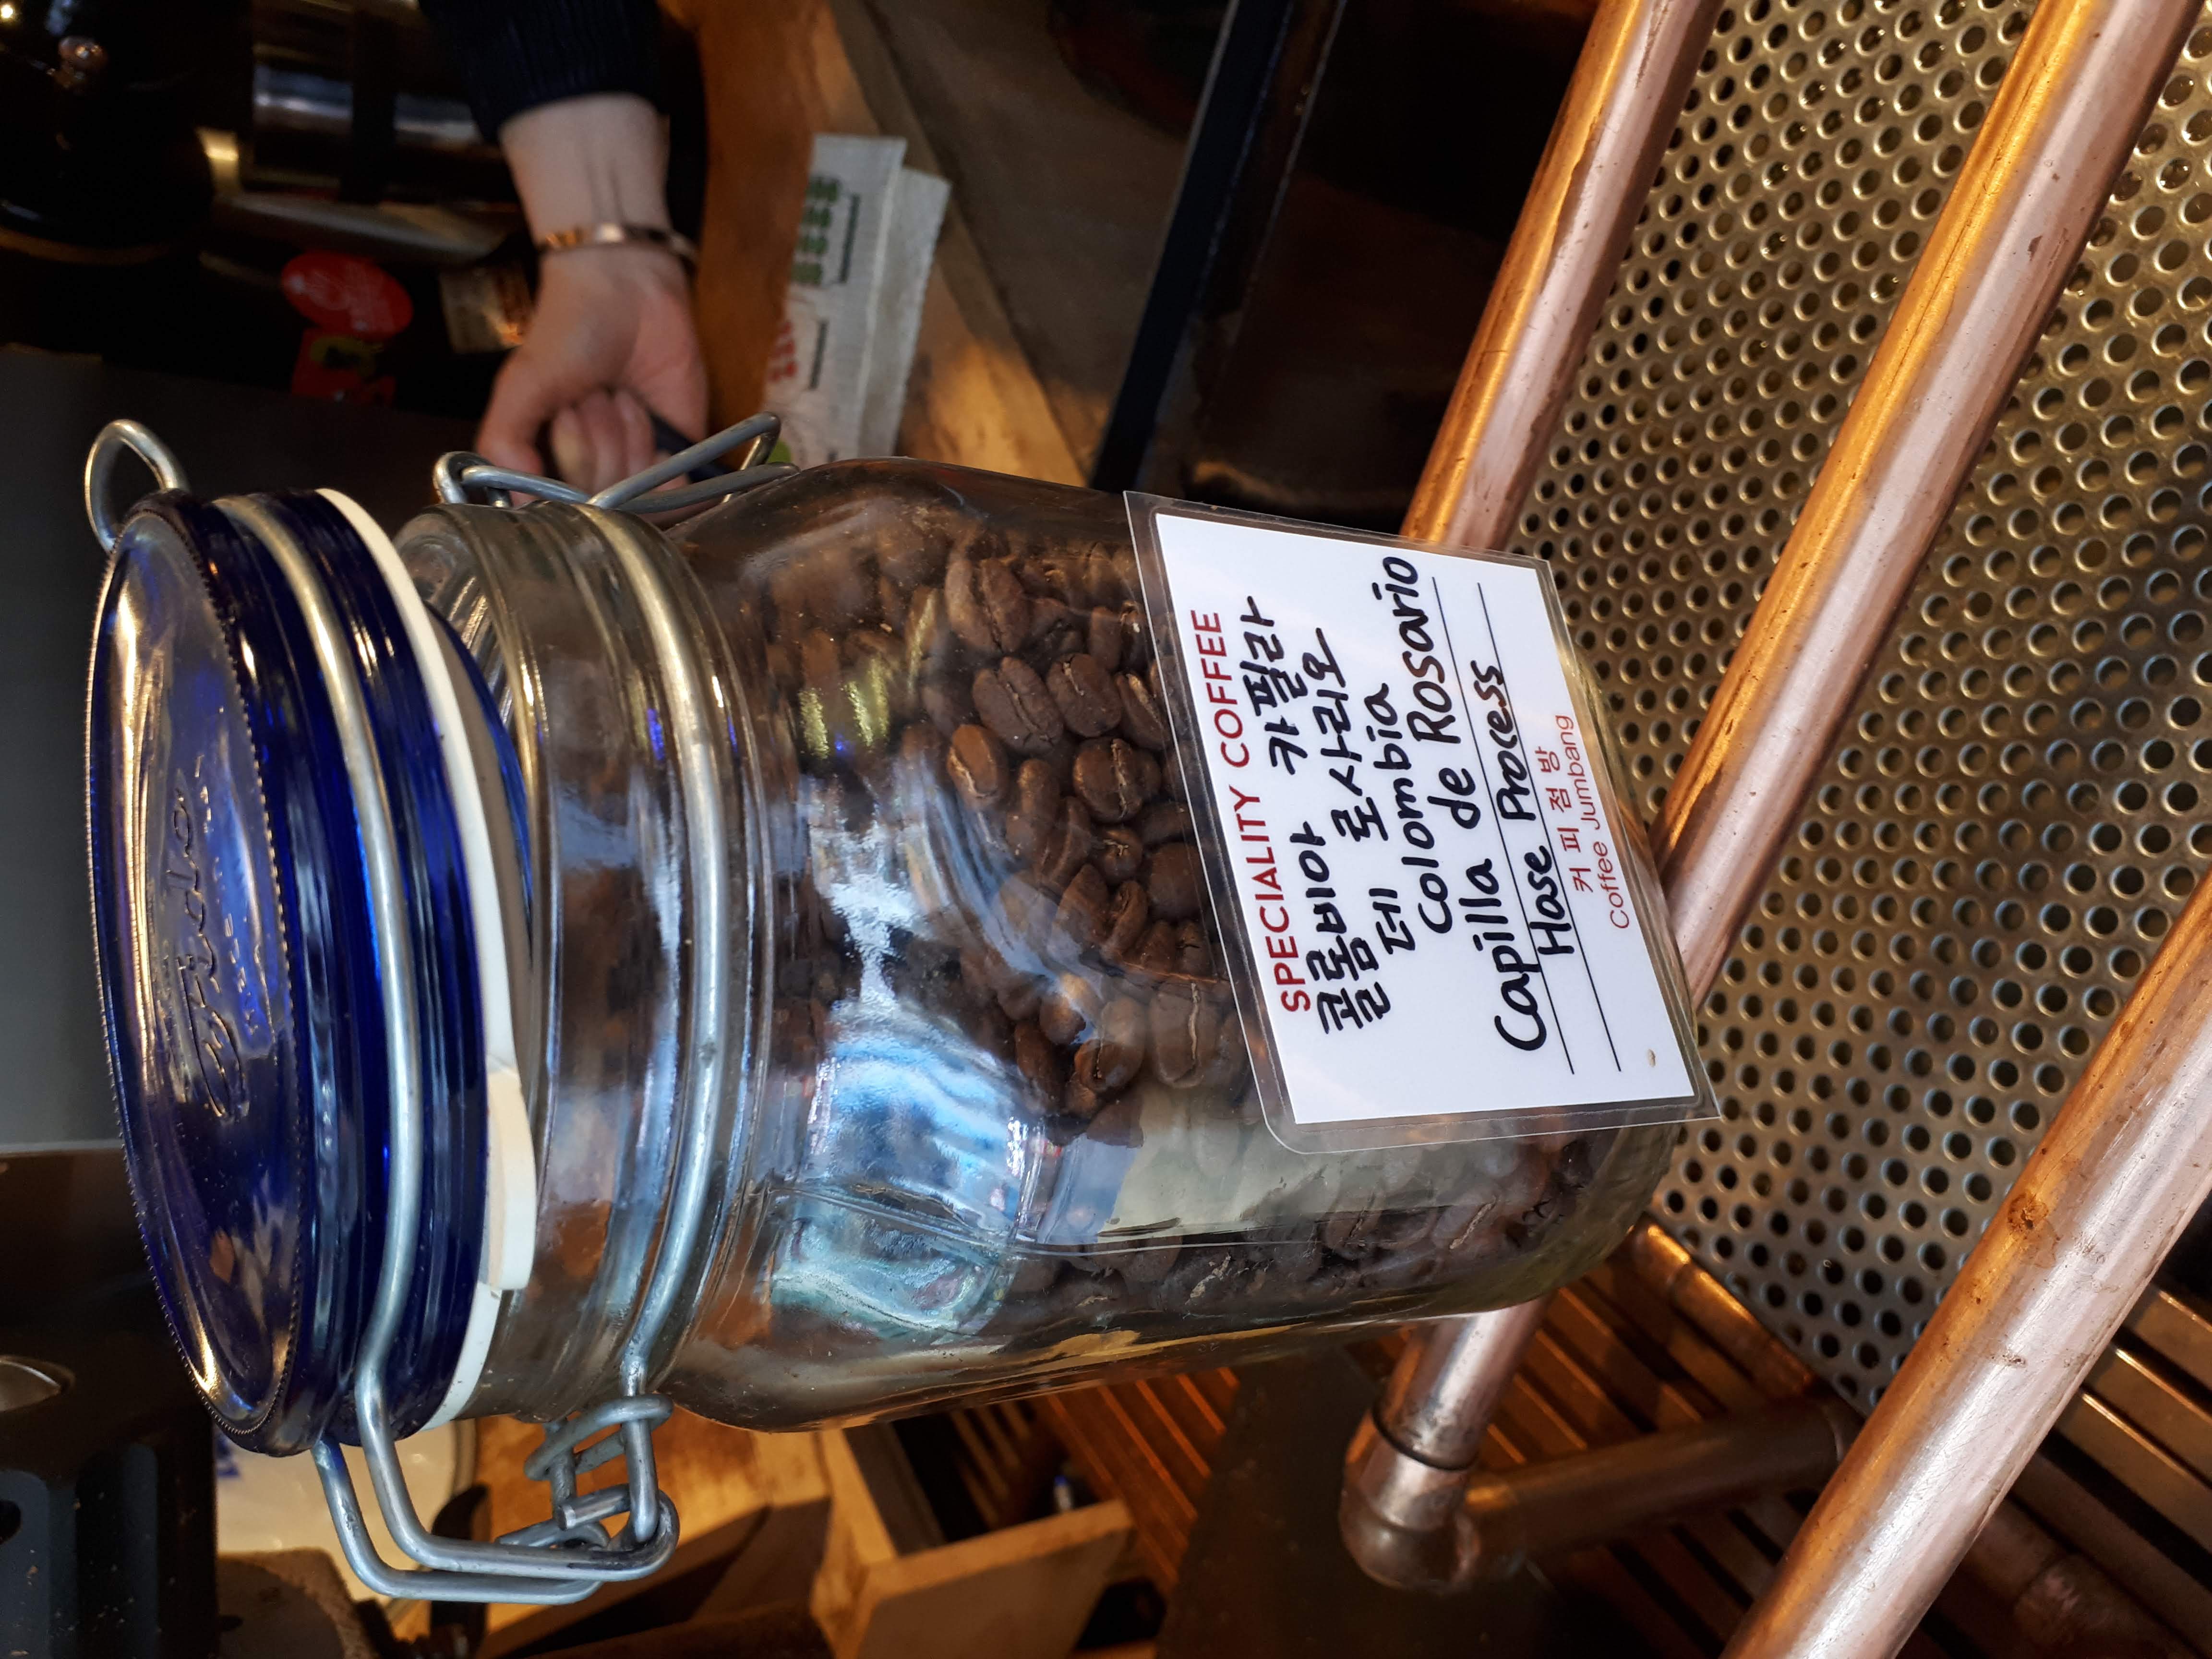 Fido
SPECIALITY COFFEE
콜롬비아 카필라
데 로사리오
Colombia
Capilla de Rosario
Hose Process
커피점방
Coffee Jumbang